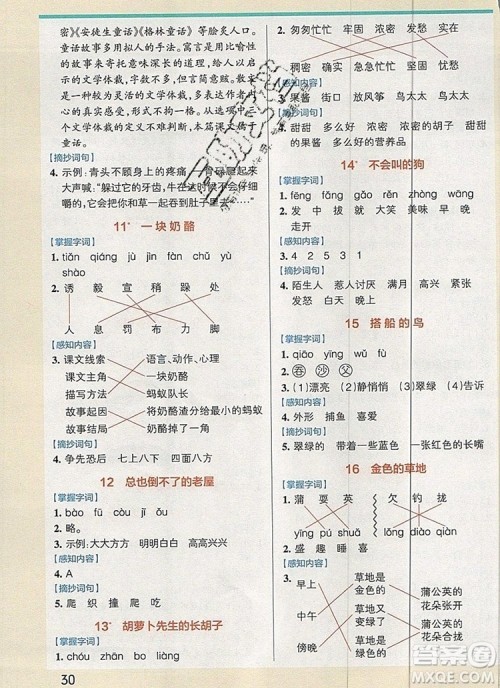 密》《安徒生童话》《格林童话》等脍炙人口。
童话故事多用拟人的手法。寓言是用比喻性
的故事来寄托意味深长的道理,给人以启示
的文学体裁,
较为灵活的文学体裁,
心的真实感受,形式不拘一格。
文学体裁中,本篇课文属于童话。
【摘抄词句】
4. 示例:青头不顾身上的疼痛,一骨碌爬起来
大声喊:“躲过它的牙齿,牛在这时候从来不会仔细
嚼的,它会把你和草一起吞到肚子里去……”
11* 一块奶酪
【掌握字词】
1. tiān qiáng jù jìn fàn chǔ yù
shào
2. 诱 毅 宣 稍 跺
人 息 罚 布 力 脚
【感知内容】
3. 课文线索 语言、动作、心理
课文主角 一块奶酪
描写方法 蚂蚁队长
故事起因 将奶酪渣分给最小的蚂蚁
故事结局 奶酪渣掉了
【摘抄词句】
4. 争先恐后 七上八下 四面八方
12 总也倒不了的老屋
【掌握字词】
1. bào còu jī ǒu
2. 略。
3. 示例:大大方方 明明白白 高高兴兴
【感知内容】
4. A
【摘抄词句】
5. 爬 织 撞 爬 晒
13* 胡萝卜先生的长胡子
【掌握字词】
1. chóu zhān bo liàng
30
2. 匆匆忙忙 牢固 浓密 发愁 实在
稠密 确实 急急忙忙 坚固 忧愁
【感知内容】
3. 果酱 街出 放风筝 鸟太太 鸟太太
【摘抄词句】
4. 甜甜 多么好 浓密 浓密的胡子 甜甜
的果酱 多么好的营养品
14* 不会叫的狗
【掌握字词】
1. fēng fāng gē rěn zhòng wāng
2. 发 中 拔 就 大 笑 美 味 早 晚
【感知内容】
3. 4 2 5 3 1
【摘抄词句】
4. 陌生人 惹人讨厌 满月 高兴 紧张
不耐烦
15 搭船的鸟
【掌握字词】
1. qiāo yīng wǔ fù
2. 吞 沙 父
3. (1)漂亮 (2)静悄悄 (3)翠绿 (4)告诉
【感知内容】
4. 外形 捕鱼 喜爱
【摘抄词句】
5. 翠绿的 带着一些蓝色 一张红色的长嘴
16 金色的草地
【掌握字词】
1. 蒲 耍 英 欠 钓 拢
yīng pú shuǎ lǒng diào qiàn
2. 盛 趣 睡 喜
【感知内容】
3. 早上 草地是金色的 蒲公英的花朵张开
中午 草地又变绿了 蒲公英的花朵合拢
傍晚 草地是绿色的